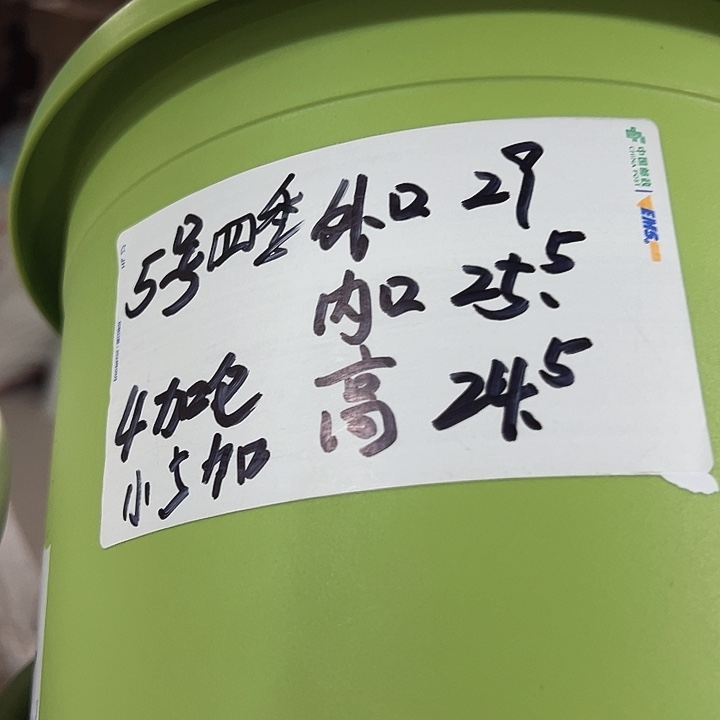 5号四季 外口 29
内口 25.5
高 24.5
4加仑
小5加
中国邮政
CHINA POST
EMS